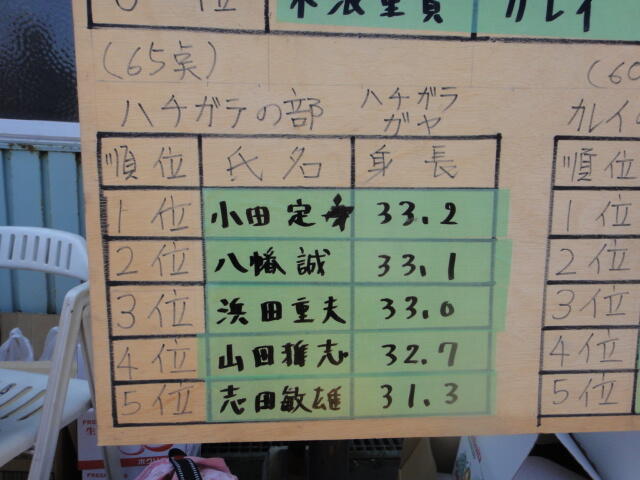 位
カレイ
(65点)
(60
ハチガテの部
ハチガラ
ガヤ
カレイの
順位 氏名 身長
1位 小田定 33.2
2位 八幡誠 33.1
3位 浜田重夫 33.0
4位 山田雅志 32.7
5位 志田敏雄 31.3
順位
1位
2位
3位
4位
5位